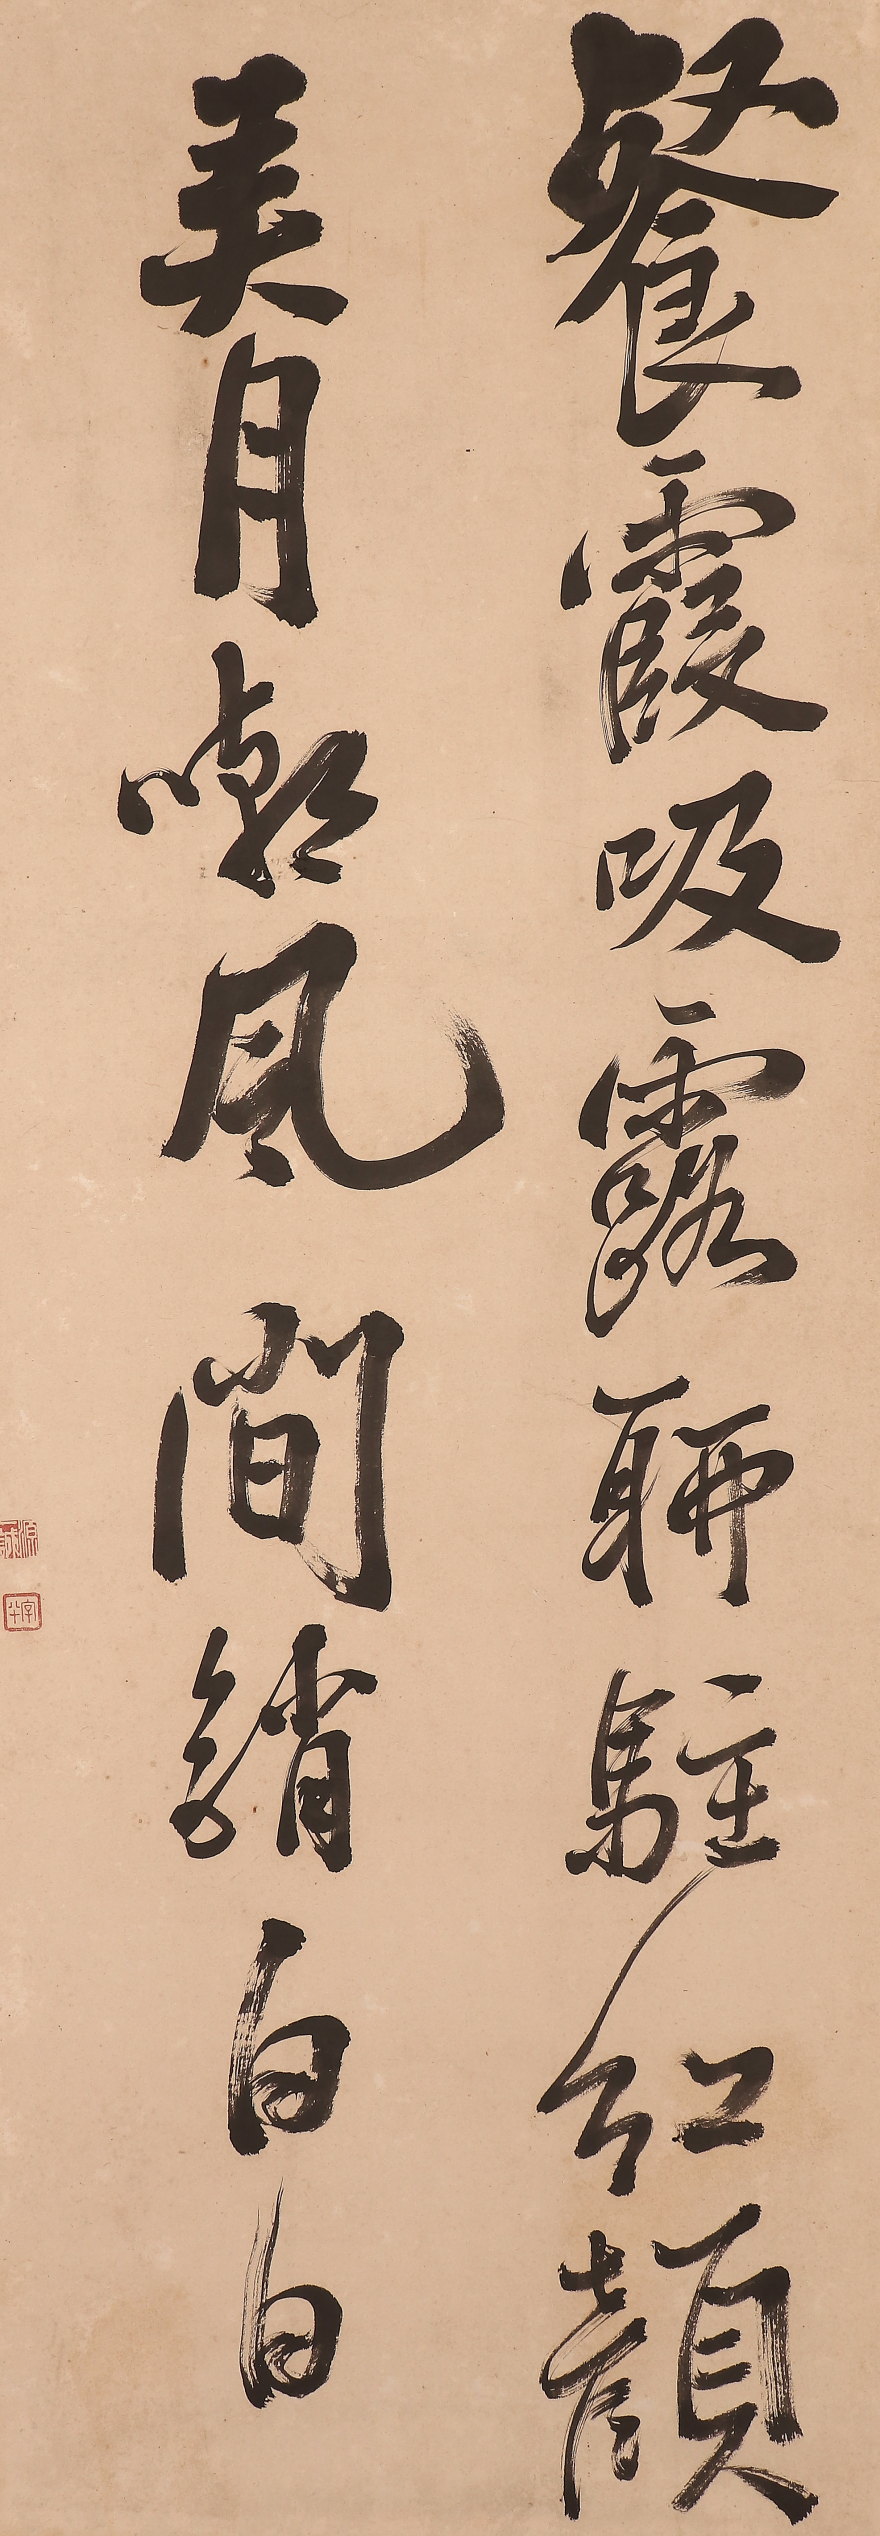 餐霞吸露聊駐紅顔
美月嘲風間銷白日